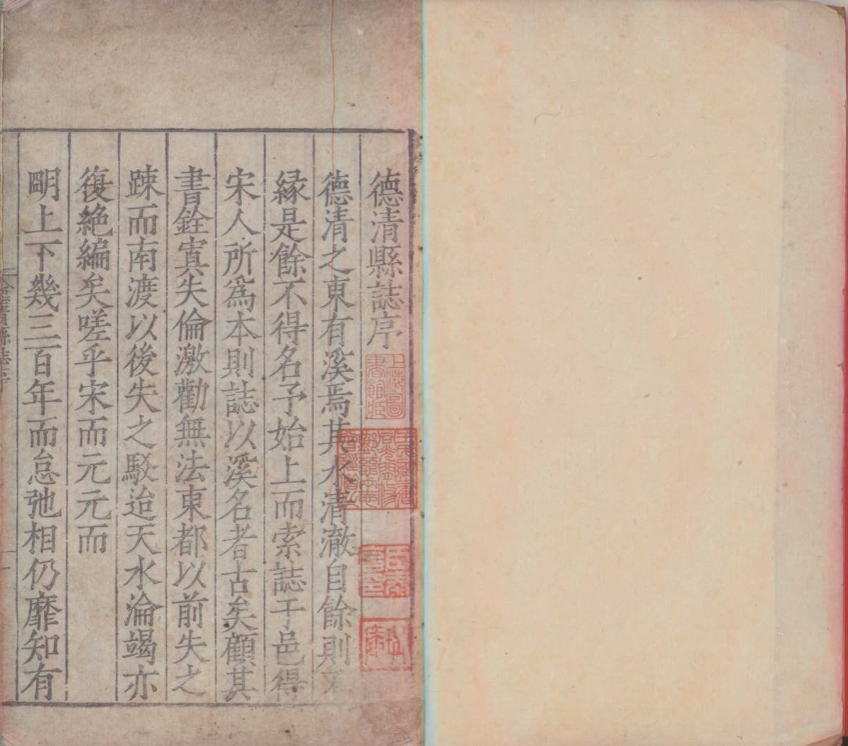 德清縣誌序
德清之東有溪焉其水清澈自餘則不
緣是餘不得名予始上而索誌于邑得
宋人所為本則誌以溪名者古矣顧其
書銓寘失倫激勸無法東都以前失之
踈而南渡以後失之駁迨天水淪竭亦
復絶編矣嗟乎宋而元元而
明上下幾三百年而怠弛相仍靡知有